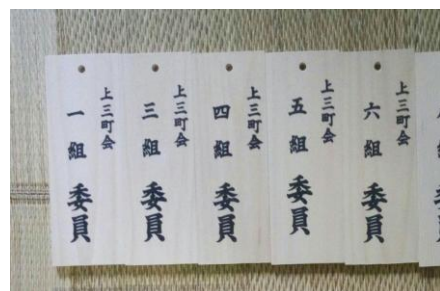 上三町会
一組 委員
上三町会
三組 委員
上三町会
四組 委員
上三町会
五組 委員
上三町会
六組 委員